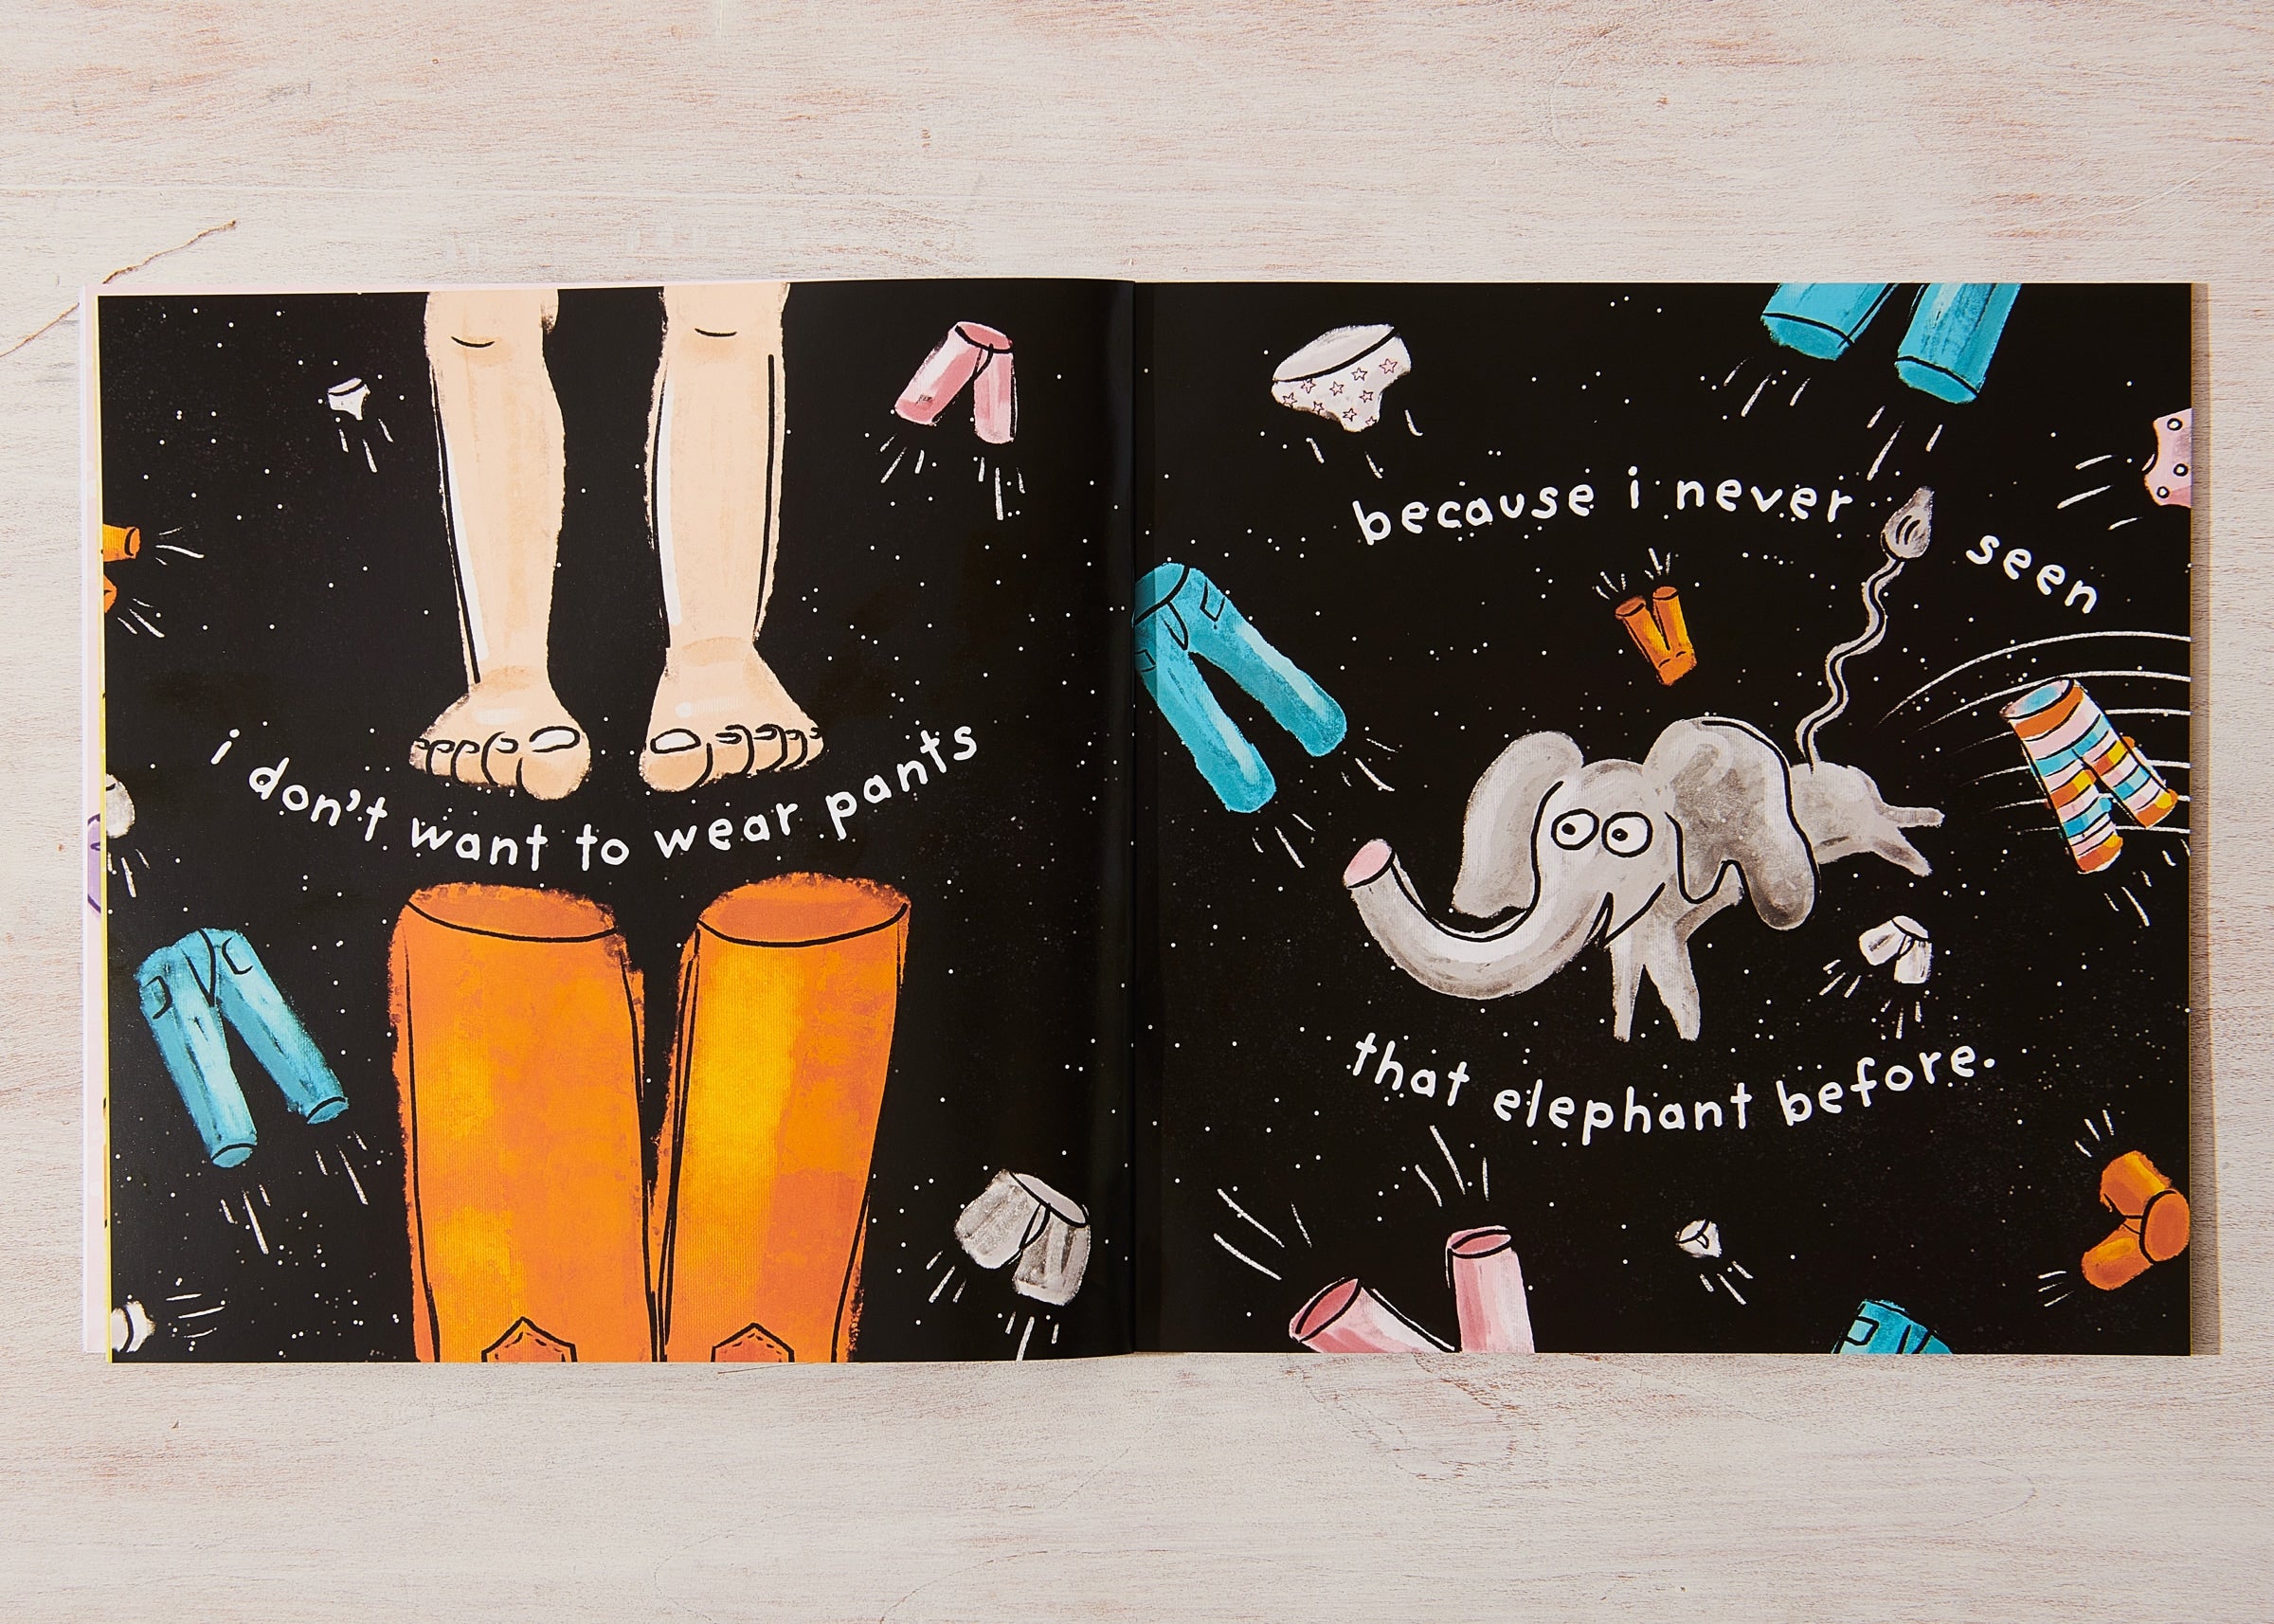 i don't want to wear pants
because i never seen
that elephant before.